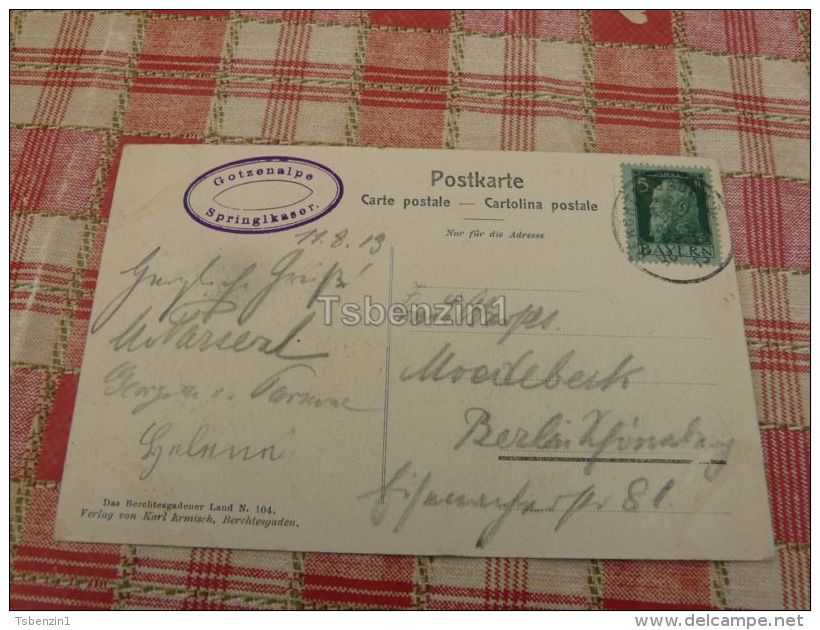 Gotzenalpe
Springlkaser.
Postkarte
Carte postale — Cartolina postale
Nur für die Adresse
5
BAYERN
11.8.13
Herzliche Grüße
Helene
Moedebeck
Berlin Schöneberg
Eisenacherstr 81.
Das Berchtesgadener Land N. 104.
Verlag von Karl Ermisch, Berchtesgaden.
Tsbenzin1
Tsbenzin1
www.delcampe.net